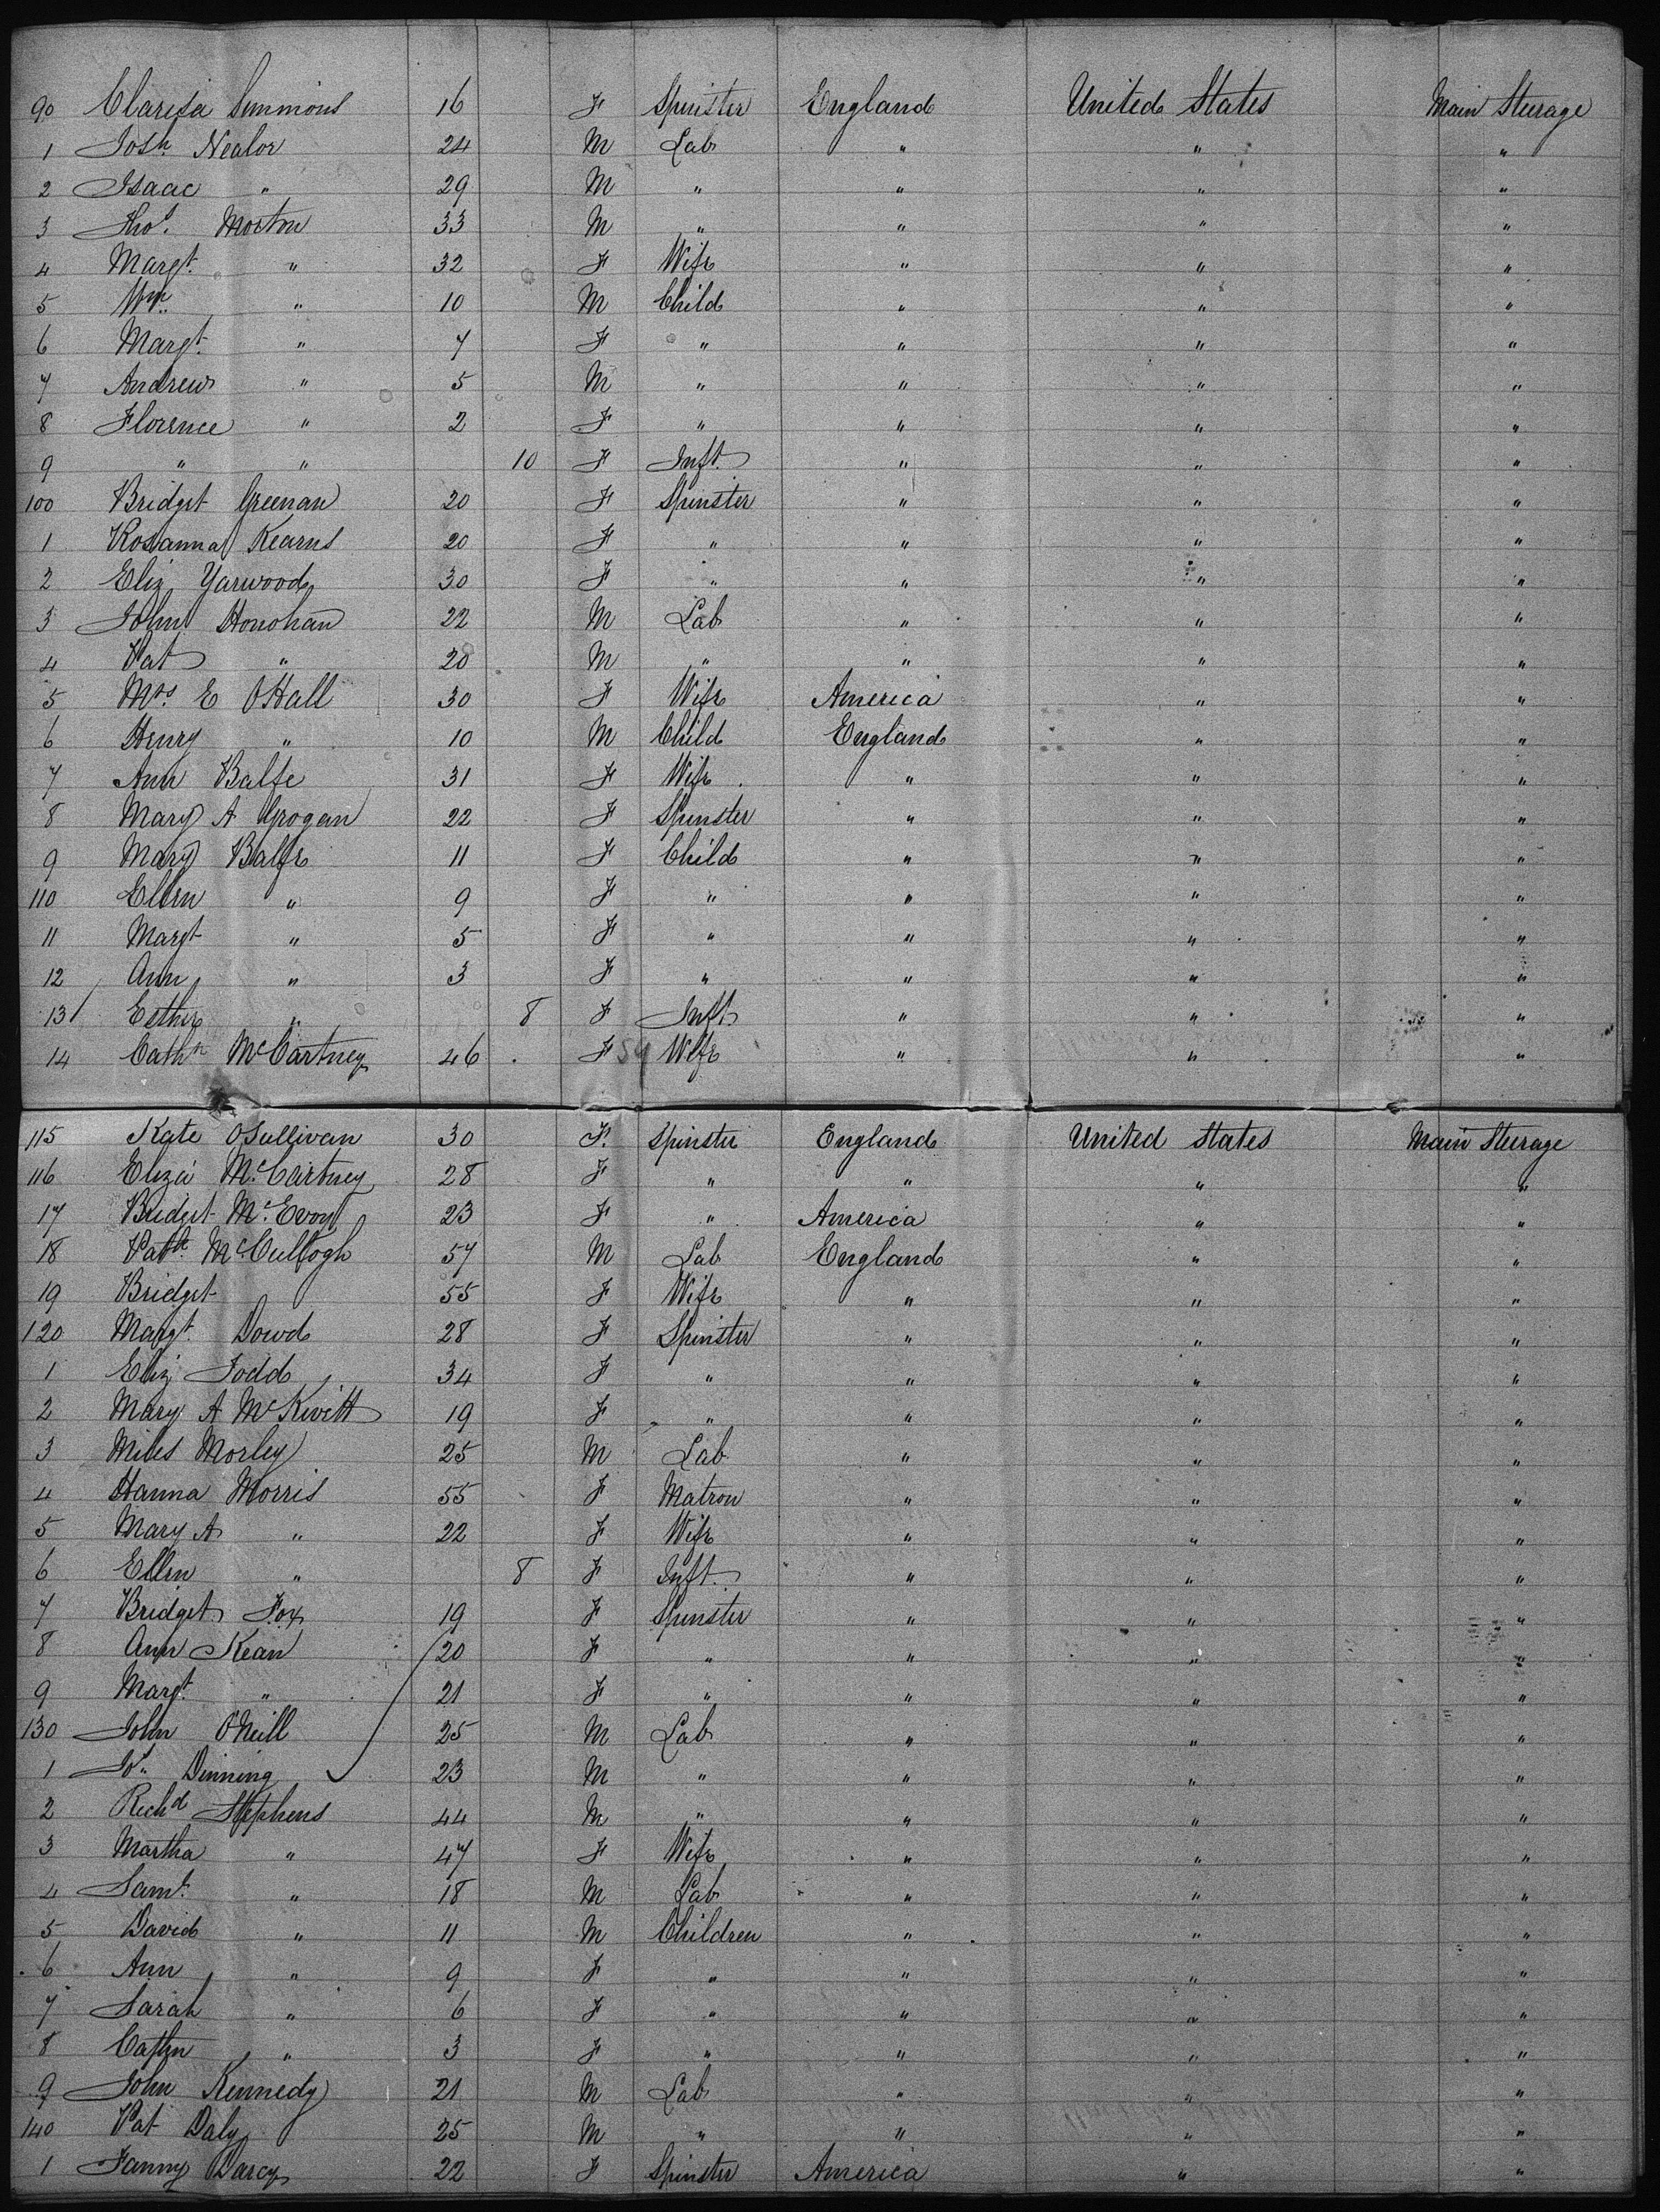 90 Clarissa Simmons 16 F Spinster England United States Main Steerage
1 Josh. Nealor 24 M Lab " " "
2 Isaac " 29 M " " " "
3 Thos. Morton 33 M " " " "
4 Margt. " 32 F Wife " " "
5 Wm. " 10 M Child " " "
6 Margt. " 7 F " " " "
7 Andrew " 5 M " " " "
8 Florence " 2 F " " " "
9 " " 10 F Inft. " " "
100 Bridget Greenan 20 F Spinster " " "
1 Rosanna Kearns 20 F " " " "
2 Eliz Yarwood 30 F " " " "
3 John Honohan 22 M Lab " " "
4 Pat " 20 M " " " "
5 Mrs. E OHall 30 F Wife America " "
6 Henry " 10 M Child England " "
7 Ann Balfe 31 F Wife " " "
8 Mary A Grogan 22 F Spinster " " "
9 Mary Balfe 11 F Child " " "
110 Ellen " 9 F " " " "
11 Margt " 5 F " " " "
12 Ann " 3 F " " " "
13 Esther " 8 F Inft " " "
14 Cathn McCartney 46 F Wife " " "
115 Kate OSullivan 30 F. Spinster England United States Main Steerage
116 Eliza McCartney 28 F " " " "
17 Bridget McEvoy 23 F " America " "
18 Patk McCullogh 57 M Lab England " "
19 Bridget 55 F Wife " " "
120 Margt. Dowd 28 F Spinster " " "
1 Eliz Todd 34 F " " " "
2 Mary A McKivitt 19 F " " " "
3 Miles Morley 25 M Lab " " "
4 Hanna Morris 55 F Matron " " "
5 Mary A " 22 F Wife " " "
6 Ellen " 8 F Inft. " " "
7 Bridget Fox 19 F Spinster " " "
8 Ann Kean 20 F " " " "
9 Margt. " 21 F " " " "
130 John O'Neill 25 M Lab " " "
1 Jos. Dinning 23 M " " " "
2 Richd Stephens 44 M " " " "
3 Martha " 47 F Wife " " "
4 Saml. " 18 M Lab " " "
5 David " 11 M Children " " "
6 Ann " 9 F " " " "
7 Sarah " 6 F " " " "
8 Cathn " 3 F " " " "
9 John Kennedy 21 M Lab " " "
140 Pat Daly 25 M " " " "
1 Fanny Darcy 22 F Spinster America " "